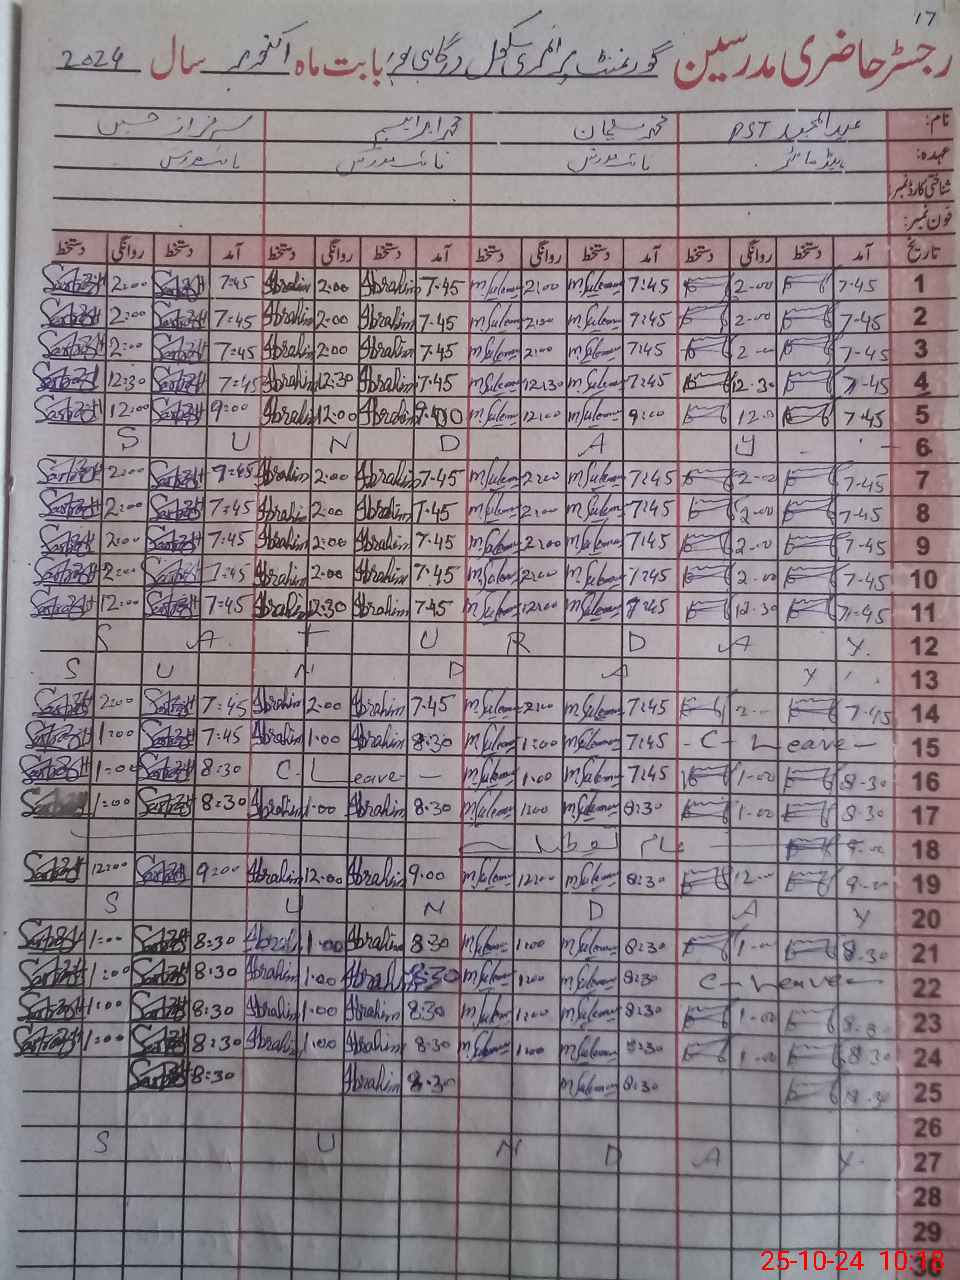 17
رجسٹر حاضری مدرسین گورنمنٹ پرائمری سکول درگاہی پور بابت ماہ اکتوبر سال 2024
نام: عبدالمجید PST محمد سلیمان محمد ابراہیم سرفراز حسین
عہدہ: ہیڈ ماسٹر نائب مدرس نائب مدرس نائب مدرس
شناختی کارڈ نمبر:
فون نمبر:
تاریخ آمد دستخط روانگی دستخط آمد دستخط روانگی دستخط آمد دستخط روانگی دستخط آمد دستخط روانگی دستخط
1 7-45 2-00 7:45 M Suleman 2:00 M Suleman 7-45 Ibrahim 2:00 Ibrahim 7:45 Sarfraz 2:00 Sarfraz
2 7-45 2-00 7:45 M Suleman 2:00 M Suleman 7-45 Ibrahim 2:00 Ibrahim 7:45 Sarfraz 2:00 Sarfraz
3 7-45 2-00 7:45 M Suleman 2:00 M Suleman 7.45 Ibrahim 2:00 Ibrahim 7:45 Sarfraz 2:00 Sarfraz
4 7-45 12.30 7:45 M Suleman 12:30 M Suleman 7.45 Ibrahim 12.30 Ibrahim 7:45 Sarfraz 12:30 Sarfraz
5 7-45 9:00 M Suleman 12:00 M Suleman 9:00 Ibrahim 12:00 Ibrahim 9:00 Sarfraz 12:00 Sarfraz
6 S U N D A Y
7 7-45 2-00 7:45 M Suleman 2:00 M Suleman 7.45 Ibrahim 2:00 Ibrahim 7:45 Sarfraz 2:00 Sarfraz
8 7-45 2-00 7:45 M Suleman 2:00 M Suleman 7.45 Ibrahim 2:00 Ibrahim 7:45 Sarfraz 2:00 Sarfraz
9 7-45 2-00 7:45 M Suleman 2:00 M Suleman 7.45 Ibrahim 2:00 Ibrahim 7:45 Sarfraz 2:00 Sarfraz
10 7-45 2-00 7:45 M Suleman 2:00 M Suleman 7.45 Ibrahim 2:00 Ibrahim 7:45 Sarfraz 2:00 Sarfraz
11 7-45 12.30 7:45 M Suleman 12:00 M Suleman 7.45 Ibrahim 12:30 Ibrahim 7:45 Sarfraz 12:00 Sarfraz
12 S A T U R D A Y
13 S U N D A Y
14 7-45 2-00 7:45 M Suleman 2:00 M Suleman 7.45 Ibrahim 2:00 Ibrahim 7:45 Sarfraz 2:00 Sarfraz
15 - C - Leave - 7:45 M Suleman 1:00 M Suleman 8:30 Ibrahim 1:00 Ibrahim 7:45 Sarfraz 1:00 Sarfraz
16 8-30 1-00 7:45 M Suleman 1:00 M Suleman C - Leave - 8:30 Sarfraz 1:00 Sarfraz
17 8-30 1-00 8:30 M Suleman 1:00 M Suleman 8:30 Ibrahim 1:00 Ibrahim 8:30 Sarfraz 1:00 Sarfraz
18 9-00 عام تعطیل
19 9-00 12-00 8:30 M Suleman 12:00 M Suleman 9.00 Ibrahim 12.00 Ibrahim 9:00 Sarfraz 12:00 Sarfraz
20 S U N D A Y
21 8-30 1-00 8:30 M Suleman 1:00 M Suleman 8:30 Ibrahim 1:00 Ibrahim 8:30 Sarfraz 1:00 Sarfraz
22 C - Leave - 8:30 M Suleman 1:00 M Suleman 8:30 Ibrahim 1:00 Ibrahim 8:30 Sarfraz 1:00 Sarfraz
23 8-30 1-00 8:30 M Suleman 1:00 M Suleman 8:30 Ibrahim 1:00 Ibrahim 8:30 Sarfraz 1:00 Sarfraz
24 8-30 1-00 8:30 M Suleman 1:00 M Suleman 8:30 Ibrahim 1:00 Ibrahim 8:30 Sarfraz 1:00 Sarfraz
25 8-30 M Suleman 8:30 Ibrahim 8:30 Sarfraz 8:30
26
27 S U N D A Y
28
29
30
25-10-24 10:18